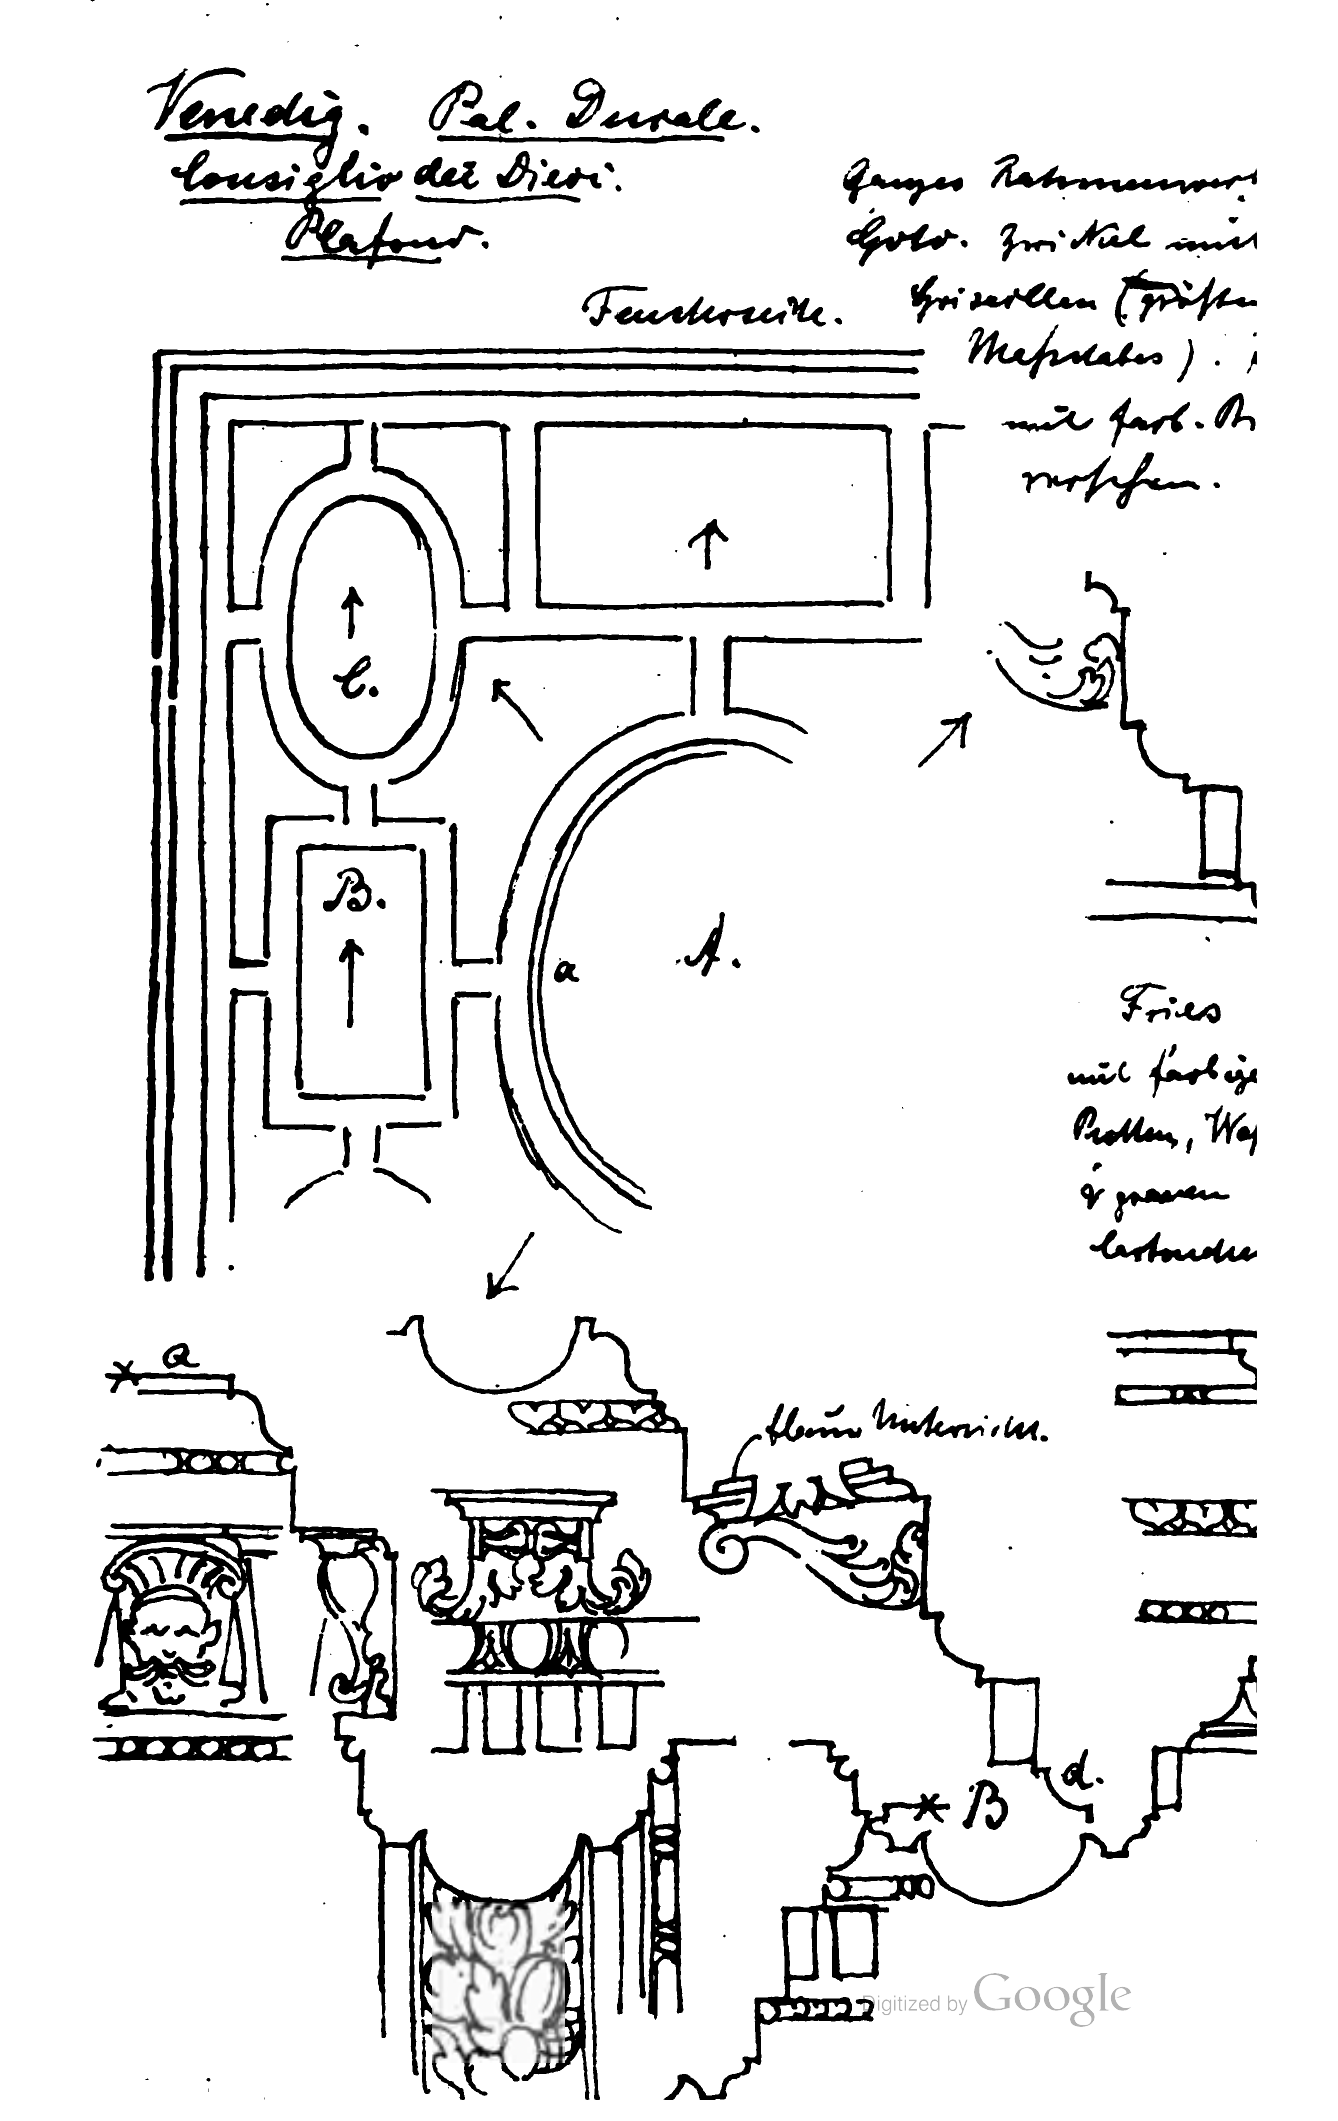 Venedig. Pal. Ducale.
Consiglio dei Dieci.
Plafond.
Ganzes Rahmenwer
Gold. Zwickel mit
Grisaillen (größten
Maßstabes).
mit farb.
versehen.
Fensterseite.
C.
B.
a
A.
Fries
mit farbige
Protten, Waf
& grauen
Cartouche
a
Untersicht.
d.
B
Digitized by Google